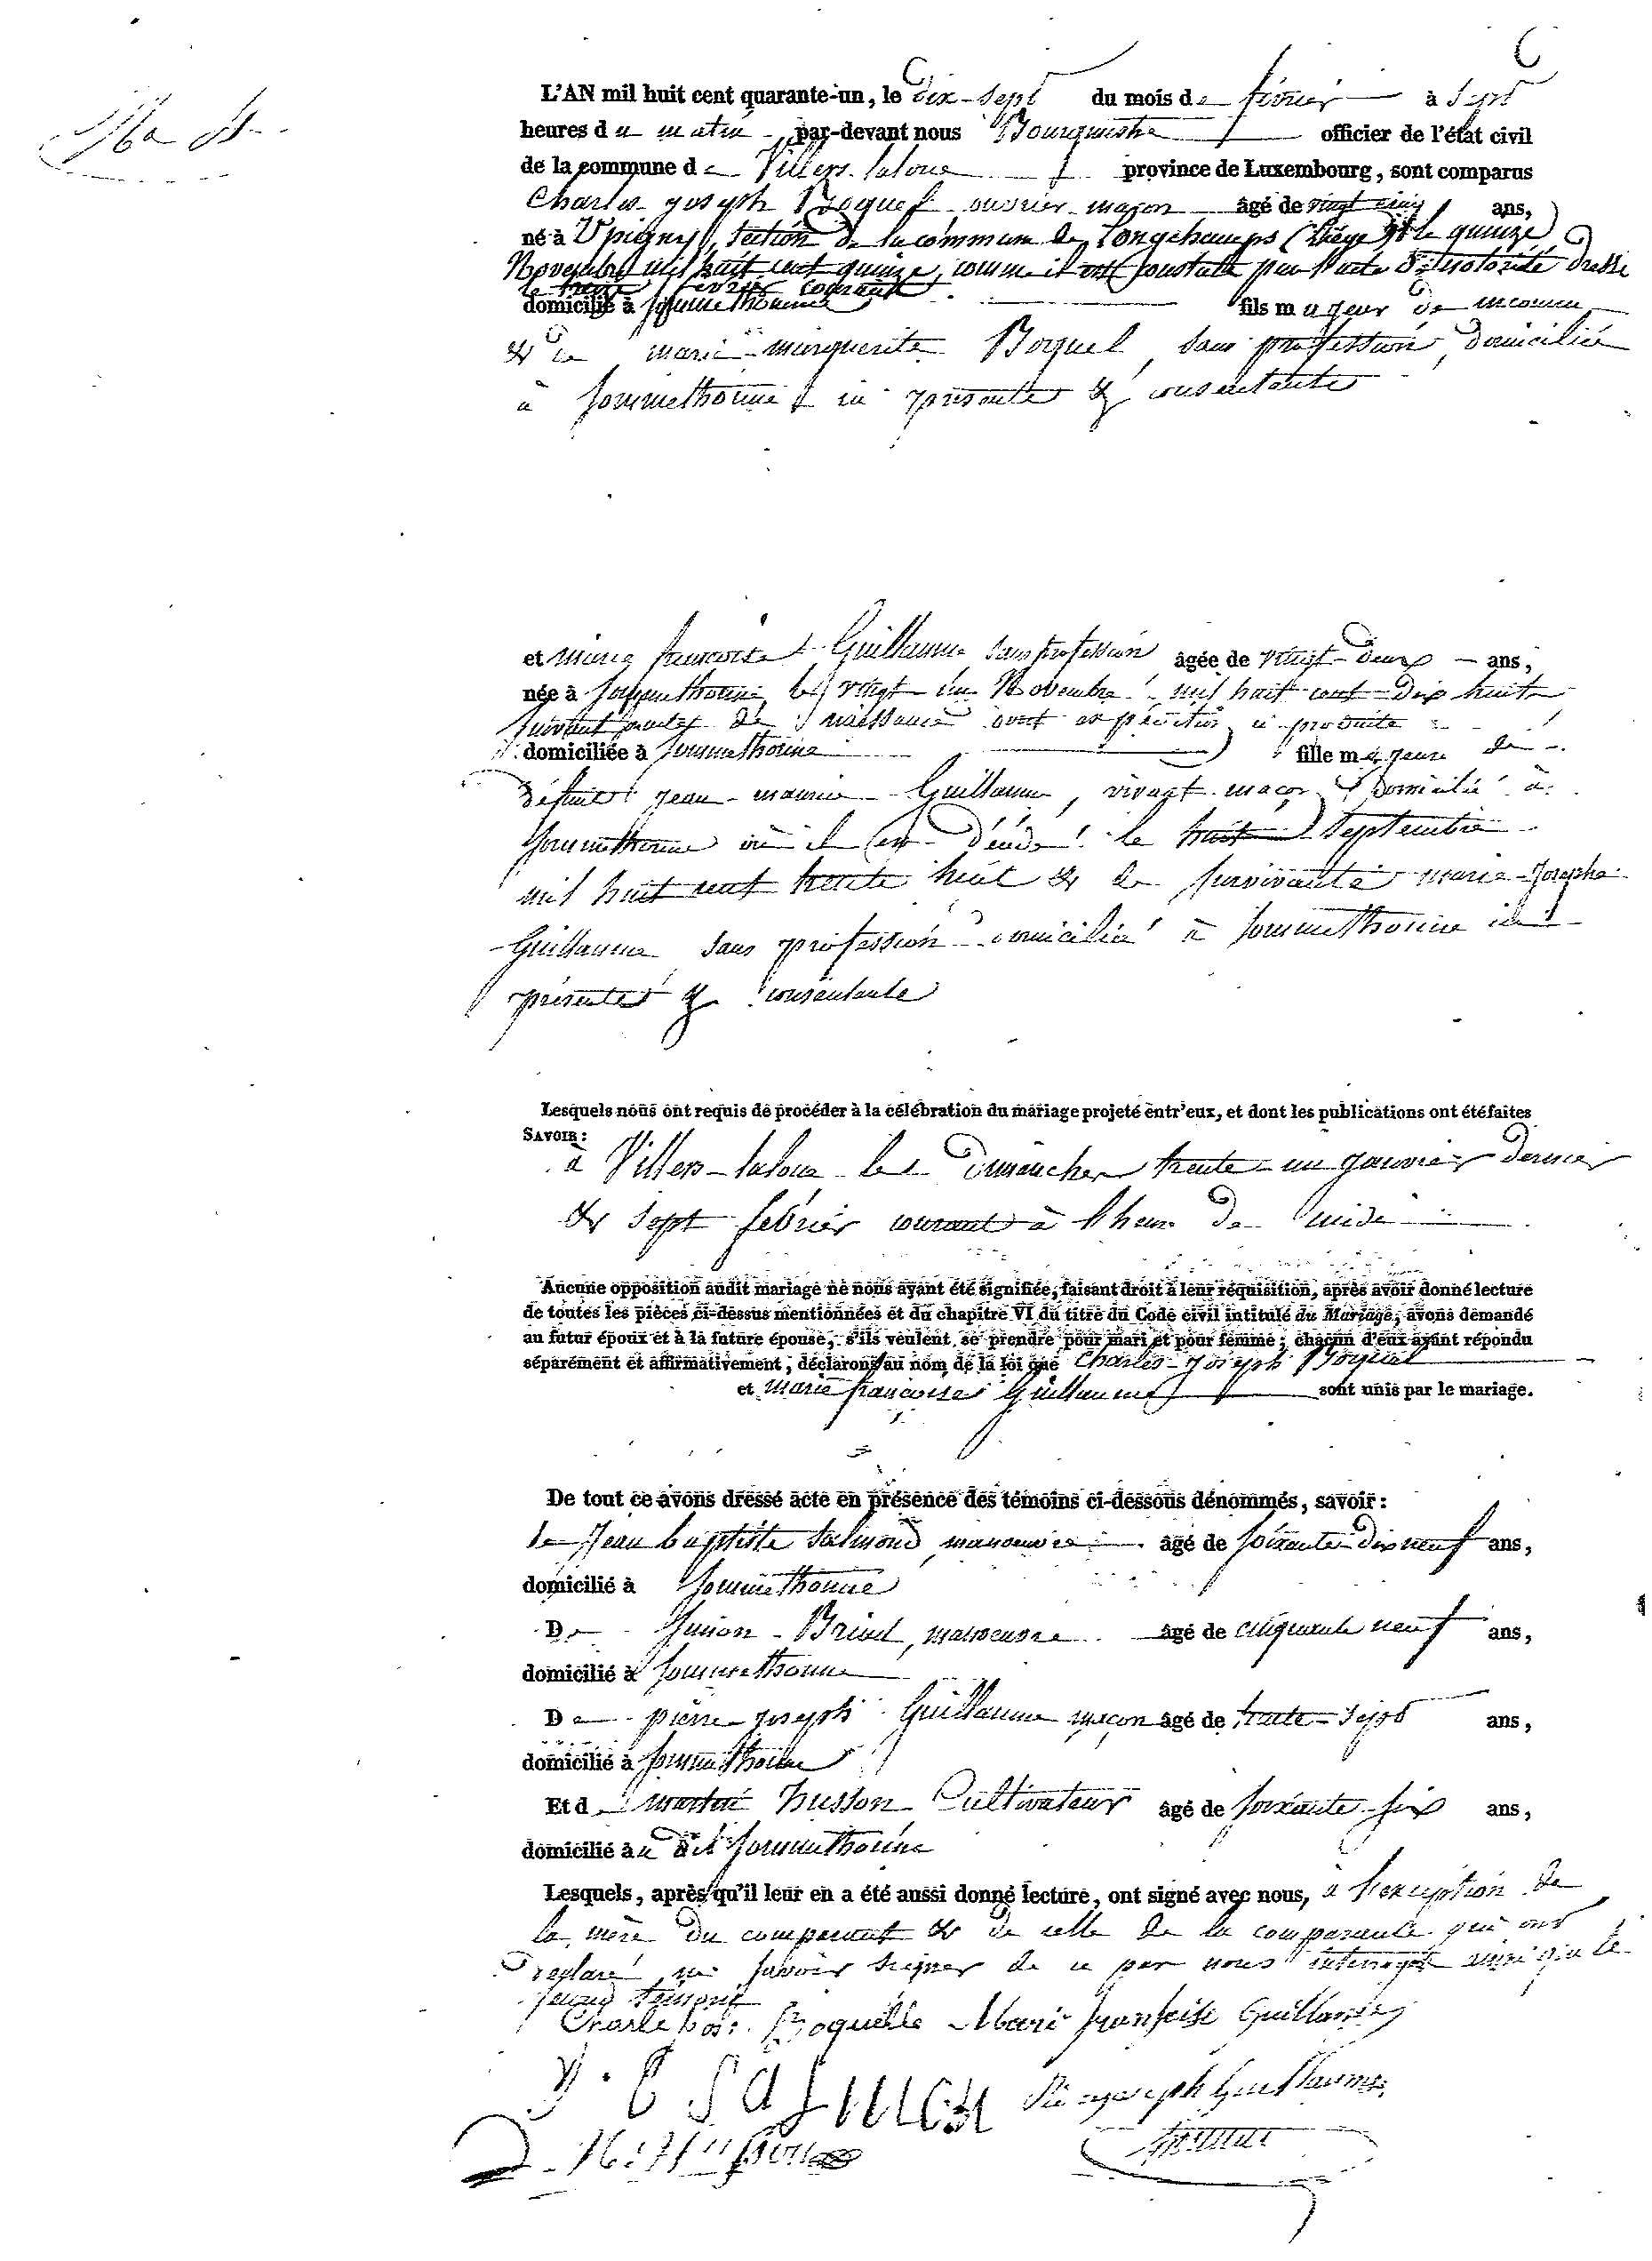 L'AN mil huit cent quarante-un, le dix-sept du mois de février à sept
heures du matin par-devant nous Bourguestre officier de l'état civil
de la commune de Villers-laloue province de Luxembourg, sont comparus
Charles joseph Boquel ouvrier maçon âgé de vingt cinq ans,
né à Upigny, Section de la commune de Longchamps (Liège) le quinze
Novembre mil huit cent quinze, comme il est constaté par l'acte de notoriété dressé
le treize février courant
domicilié à Sommethonne fils majeur de inconnu
& de marie-marguerite Boquel, sans profession, domiciliée
à Sommethonne ici présente & consentante
et marie françoise Guillaume sans profession âgée de vingt-deux ans,
née à Sommethonne, le vingt un Novembre mil huit cent dix huit
suivant l'acte de naissance dont expédition a produite
domiciliée à Sommethonne fille majeure de
défunt jean-maurice Guillaume, vivant maçon domicilié à
Sommethonne où il est décédé le huit Septembre
mil huit cent trente huit & de survivante marie-Josephe
Guillaume sans profession domiciliée à Sommethonne ici
présente & consentante
Lesquels nous ont requis de procéder à la célébration du mariage projeté entr'eux, et dont les publications ont été faites
SAVOIR :
à Villers-laloue les dimanches trente-un janvier dernier
& sept février courant à l'heure de midi
Aucune opposition audit mariage ne nous ayant été signifiée, faisant droit à leur réquisition, après avoir donné lecture
de toutes les pièces ci-dessus mentionnées et du chapitre VI du titre du Code civil intitulé du Mariage, avons demandé
au futur époux et à la future épouse, s'ils veulent se prendre pour mari et pour femme ; chacun d'eux ayant répondu
séparément et affirmativement, déclarons au nom de la loi que Charles-Joseph Boquel
et marie françoise Guillaume sont unis par le mariage.
De tout ce avons dressé acte en présence des témoins ci-dessous dénommés, savoir :
de Jean baptiste Salmon, manoeuvre âgé de soixante-dix neuf ans,
domicilié à Sommethonne
De Simon Briel, manoeuvre âgé de cinquante neuf ans,
domicilié à Sommethonne
De pierre joseph Guillaume maçon âgé de trente-sept ans,
domicilié à Sommethonne
Et de martin husson Cultivateur âgé de soixante-six ans,
domicilié à dit Sommethonne
Lesquels, après qu'il leur en a été aussi donné lecture, ont signé avec nous, à l'exception de
la mère du comparant & de celle de la comparante qui ont
déclaré ne savoir signer de ce par nous interrogés ainsi que le
second témoin
Charle jos: Boquelle Marie françoise Guillaume
J. B SALMON Pierre joseph Guillaume